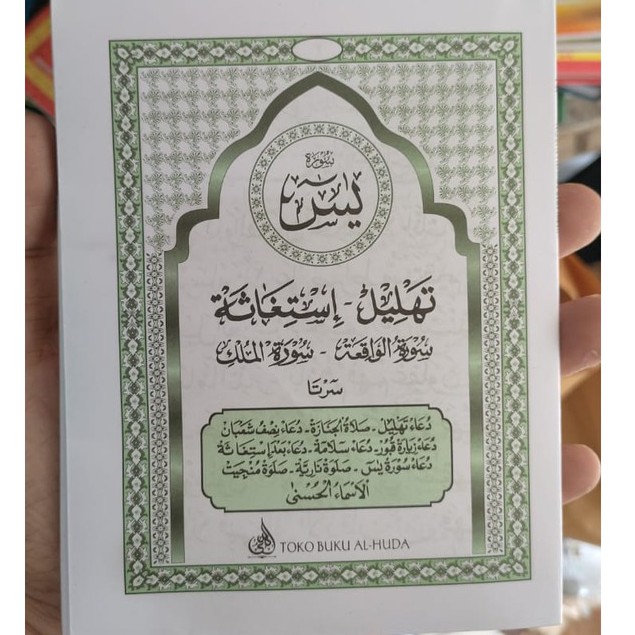 سُوْرَة
يٰسٓ
تَهْلِيْل - إِسْتِغَاثَة
سُوْرَةُ الْوَاقِعَة - سُوْرَةُ الْمُلْكِ
سَرْتَا
دُعَاء تَهْلِيْل - صَلَاةُ الْجَنَازَة - دُعَاء نِصْفُ شَعْبَان
دُعَاء زِيَارَة قُبُوْر - دُعَاء سَلَامَة - دُعَاء بَعْدَ إِسْتِغَاثَة
دُعَاء سُوْرَة يٰسٓ - صَلَوة نَارِيَّة - صَلَوة مُنْجِيَت
الْأَسْمَاءُ الْحُسْنٰى
TOKO BUKU AL-HUDA